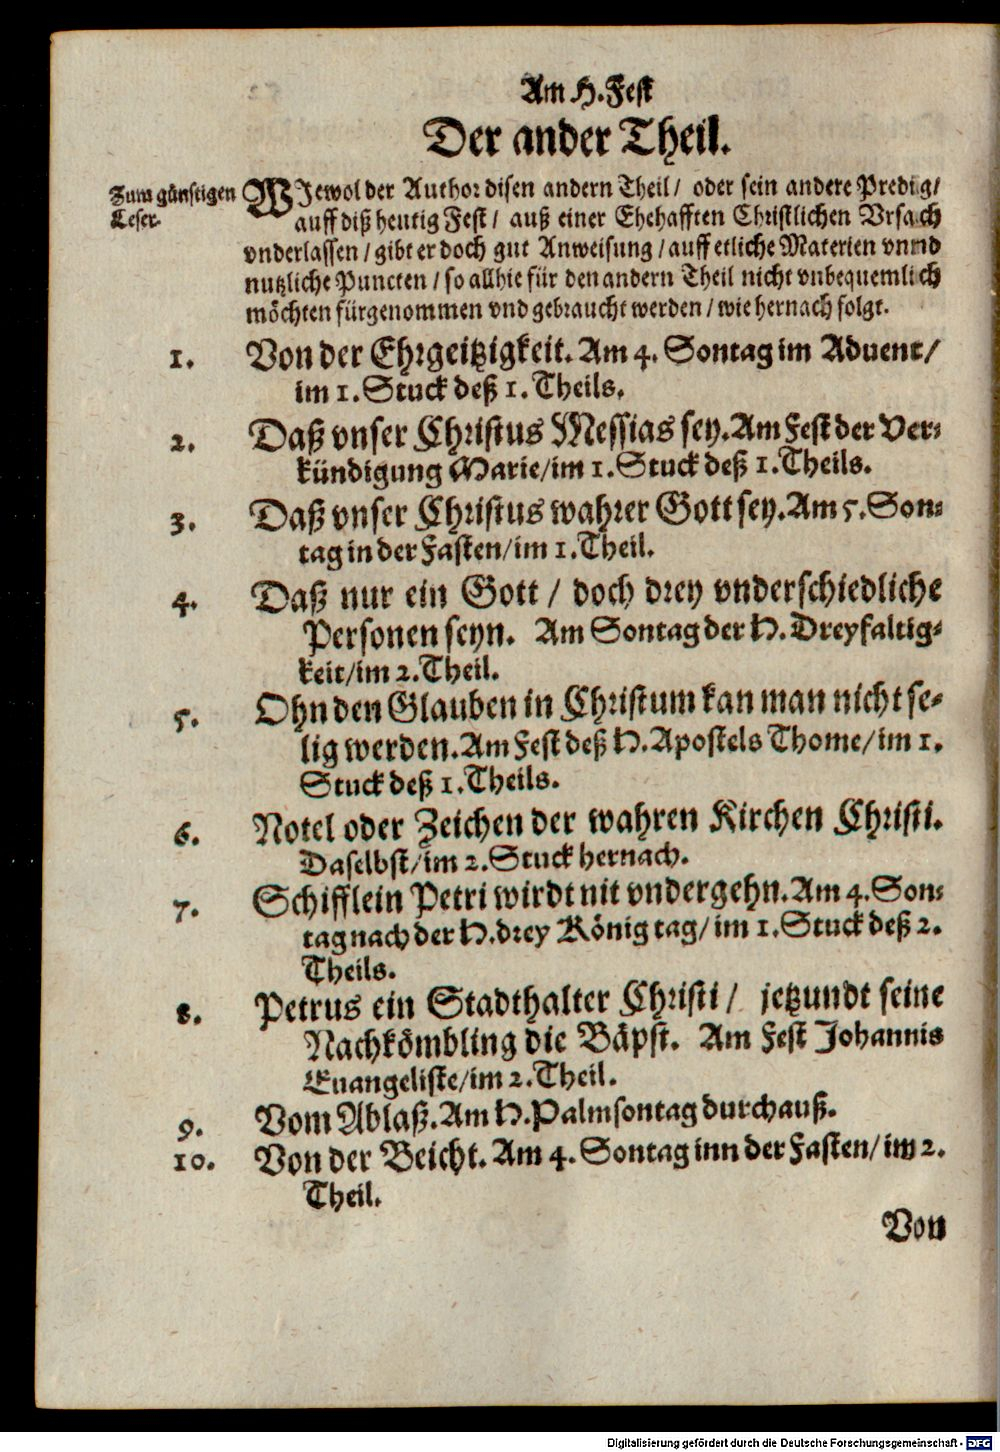 Am H. Fest
Der ander Theil.
Zum günstigen
Leser.
WJewol der Author disen andern Theil/ oder sein andere Predig/
auff diß heutig Fest/ auß einer Ehehafften Christlichen Vrsach
vnderlassen/ gibt er doch gut Anweisung/ auff etliche Materien vnnd
nutzliche Puncten/ so allhie für den andern Theil nicht vnbequemlich
möchten fürgenommen vnd gebraucht werden/ wie hernach folgt.
1. Von der Ehrgeitzigkeit. Am 4. Sontag im Aduent/
im 1. Stuck deß 1. Theils.
2. Daß vnser Christus Messias sey. Am Fest der Ver-
kündigung Marie/ im 1. Stuck deß 1. Theils.
3. Daß vnser Christus wahrer Gott sey. Am 5. Son-
tag in der Fasten/ im 1. Theil.
4. Daß nur ein Gott/ doch drey vnderschiedliche
Personen seyn. Am Sontag der H. Dreyfaltig-
keit/ im 2. Theil.
5. Ohn den Glauben in Christum kan man nicht se-
lig werden. Am Fest deß H. Apostels Thome/ im 1.
Stuck deß 1. Theils.
6. Notel oder Zeichen der wahren Kirchen Christi.
Daselbst/ im 2. Stuck hernach.
7. Schifflein Petri wirdt nit vndergehn. Am 4. Son-
tag nach der H. drey König tag/ im 1. Stuck deß 2.
Theils.
8. Petrus ein Stadthalter Christi/ jetzundt seine
Nachkömbling die Bäpst. Am Fest Johannis
Euangeliste/ im 2. Theil.
9. Vom Ablaß. Am H. Palmsontag durchauß.
10. Von der Beicht. Am 4. Sontag inn der Fasten/ im 2.
Theil.
Von
Digitalisierung gefördert durch die Deutsche Forschungsgemeinschaft - DFG